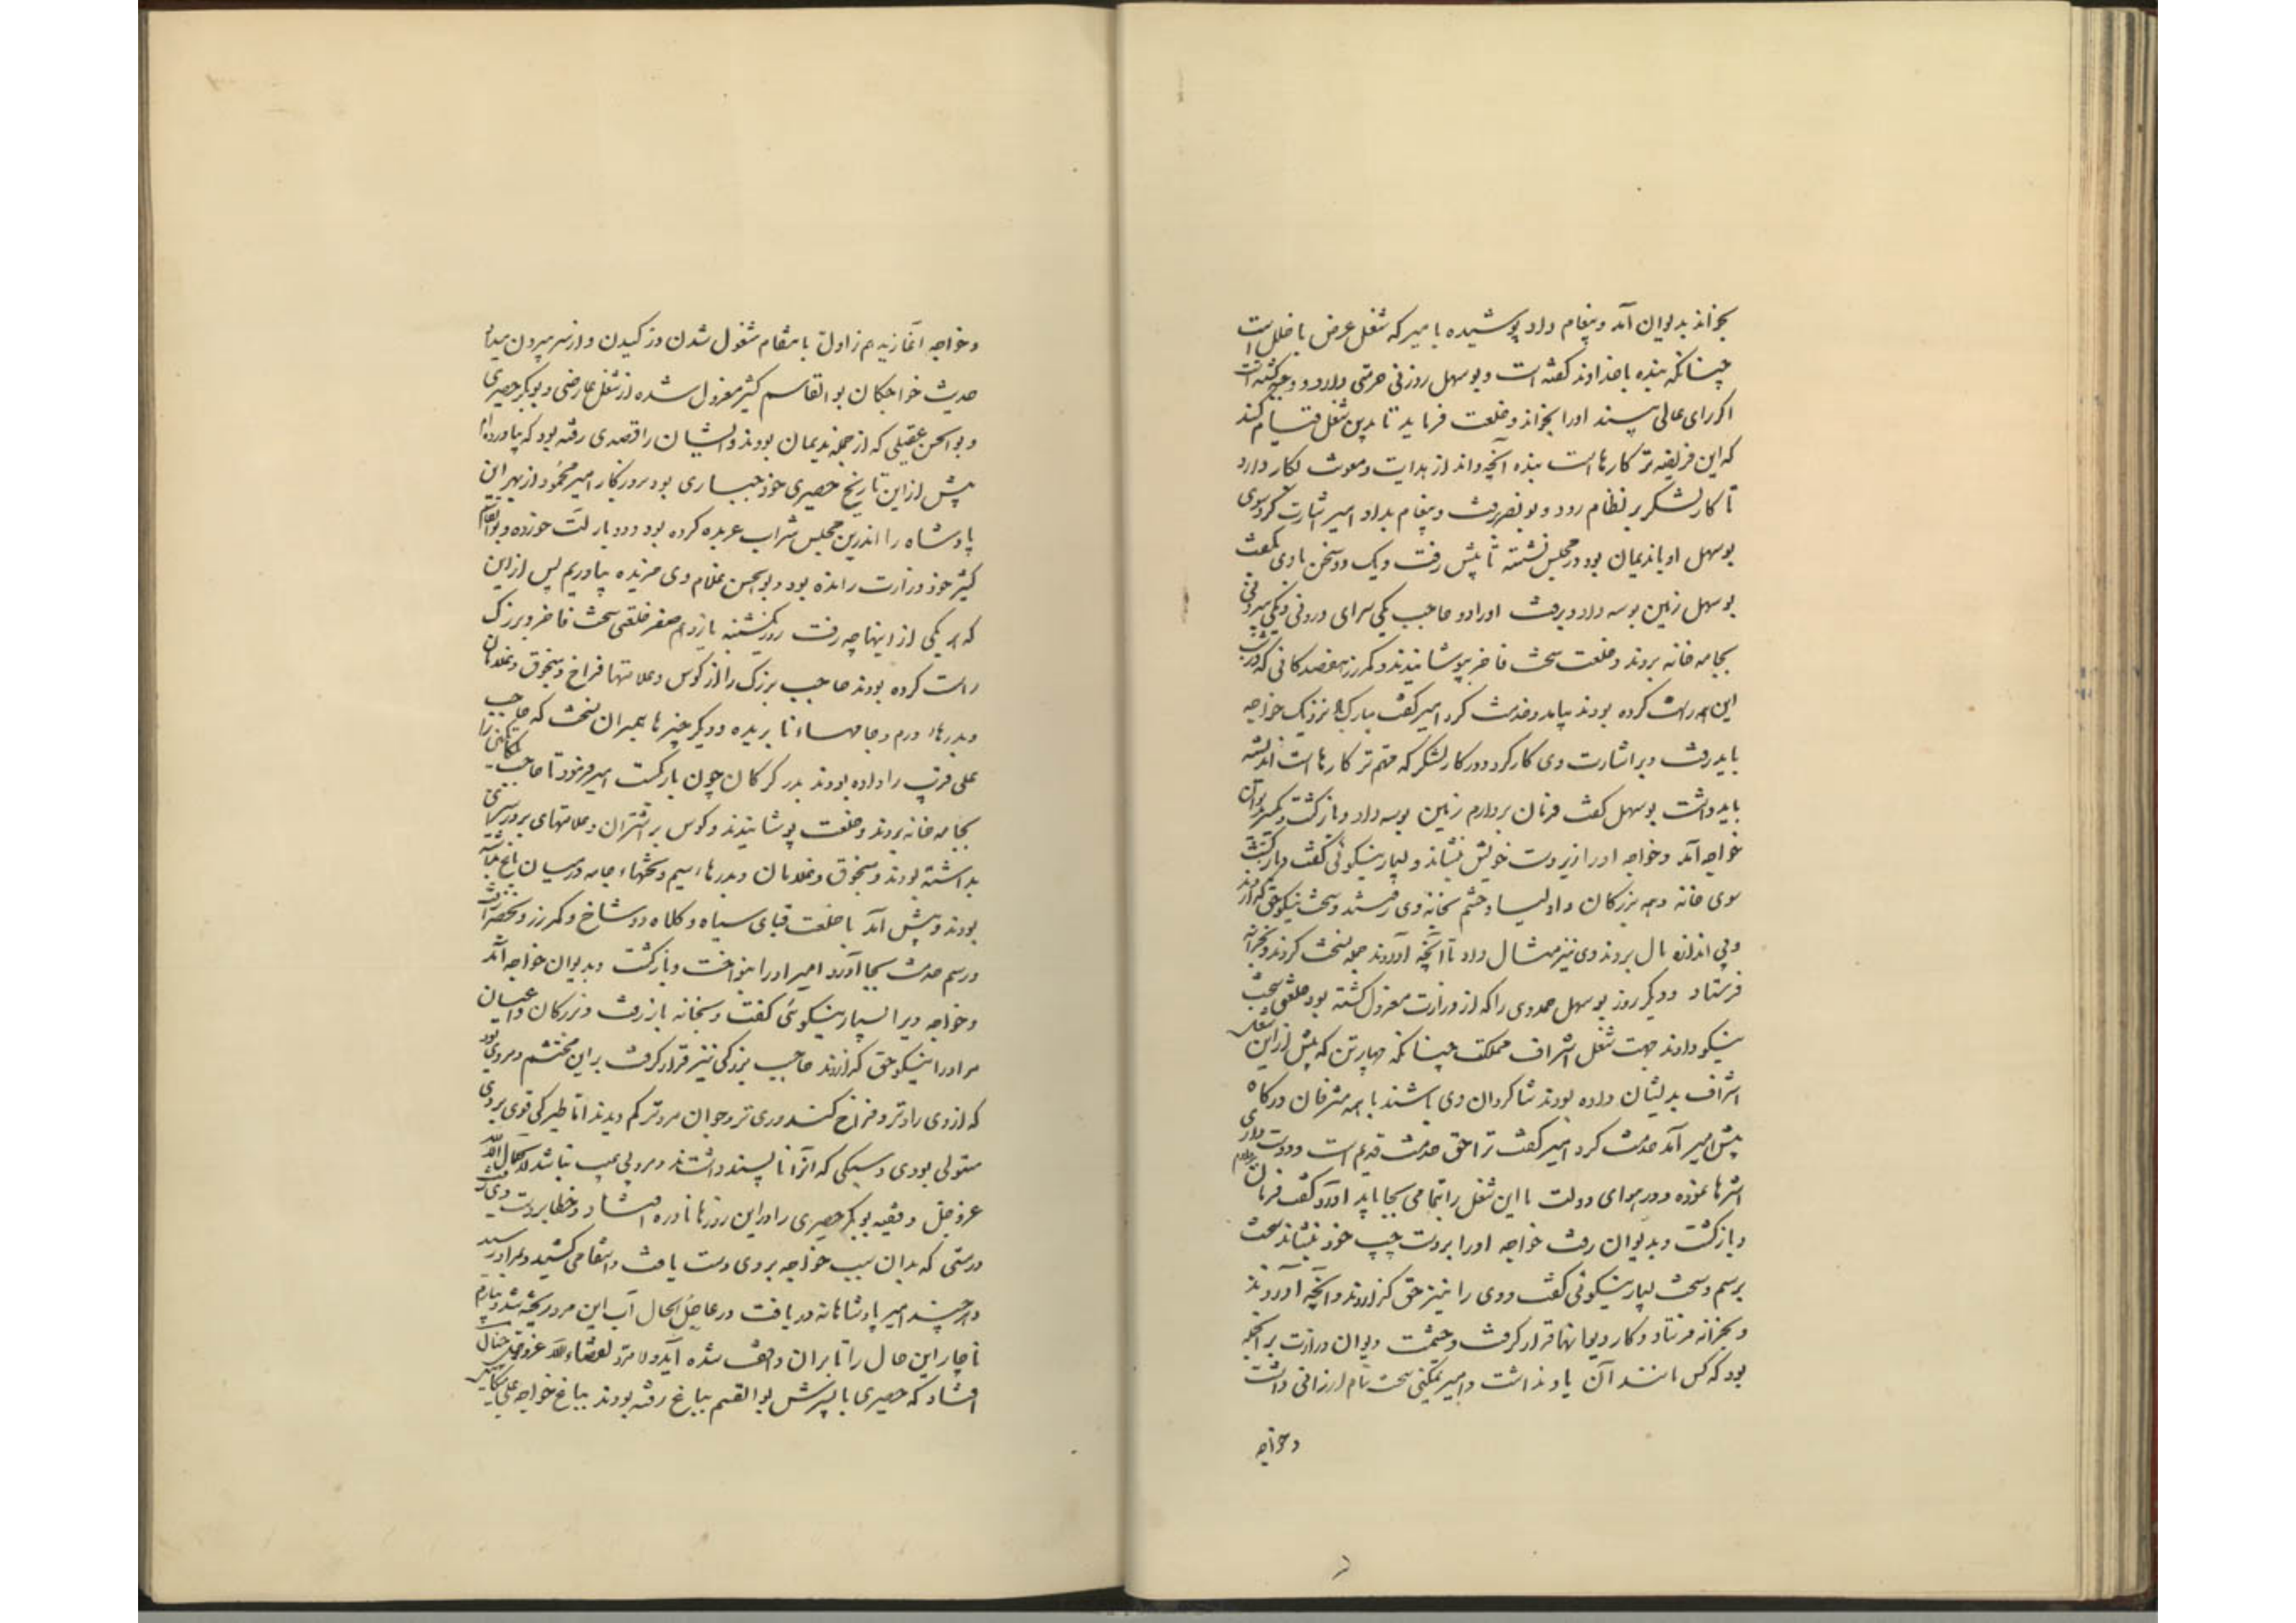 بخواند بدیوان آمد و پیغام داد پوشیده با میر که شغل عرض با خلل است
چنانکه بنده با خداوند گفته است و بوسهل زوزنی حرمتی دارد و وجیه گشته است
اگر رای عالی بیند او را بخواند و خلعت فرماید تا بدین شغل قیام کند
که این فریضه تر کارهاست بنده آنچه داند از هدایت و معونت بکار دارد
تا کار لشکر بر نظام رود و بونصر رفت و پیغام بداد امیر اشارت کرد سوی
بوسهل او با ندیمان بود در مجلس نشسته تا پیش رفت و یک دو سخن با وی بگفت
بوسهل زمین بوسه داد و برفت او را دو حاجب یکی سرای درونی و یکی بیرونی
بجامه خانه بردند و خلعت سخت فاخر بپوشانیدند و کمر زر هفصد کانی که در شب
این همه راست کرده بودند بیامد و خدمت کرد امیر گفت مبارک باد نزدیک خواجه
باید رفت و بر اشارت وی کار کرد و در کار لشکر که مهم تر کارهاست اندیشه
باید داشت بوسهل گفت فرمان بردارم زمین بوسه داد و بازگشت و یکسر بدیوان
خواجه آمد و خواجه او را زیر دست خویش بنشاند و بسیار نیکوئی گفت و بازگشت
سوی خانه و همه بزرگان و اولیا و حشم بخانه وی رفتند و سخت نیکو حق گزاردند
و بی اندازه مال بردند وی نیز مثال داد تا آنچه آوردند جمله نسخت کردند و بخزانه
فرستاد و دیگر روز بوسهل حمدوی را که از وزارت معزول گشته بود خلعتی سخت
نیکو دادند جهت شغل اشراف مملکت چنانکه چهار تن که پیش ازین شغل
اشراف بدیشان داده بودند شاگردان وی باشند با همه مشرفان درگاه
پیش امیر آمد خدمت کرد امیر گفت ترا حق خدمت قدیم است و دوست داری
اثرها نموده و در هوای دولت ما این شغل را بتمامی بجا باید آورد گفت فرمان بردارم
و بازگشت و بدیوان رفت خواجه او را بر دست چپ خود بنشاند سخت
برسم و سخت بسیار نیکوئی گفت و وی را نیز حق گزاردند و آنچه آوردند
بخزانه فرستاد و کار دیوانها قرار گرفت و حشمت دیوان وزارت بر آنجمله
بود که کس مانند آن یاد نداشت و امیر تمکینی سخت تمام ارزانی داشت
و خواجه
و خواجه آغازید هم از اول بانتقام مشغول شدن و ژکیدن و از سر بیرون میداد
حدیث خواجگان بوالقاسم کثیر معزول شده از شغل عارضی و بوبکر حصیری
و بوالحسن عقیلی که از جمله ندیمان بودند و ایشان را قصدی رفته بود که بیاورده ام
پیش از این تاریخ حصیری خود جباری بود بروزگار امیر محمود از بهر این
پادشاه را اندرین مجلس شراب عربده کرده بود و دو بار لت خورده و بوالقاسم
کثیر خود وزارت رانده بود و بوالحسن غلام وی خریده بیاوریم پس از این
که بر یکی از اینها چه رفت روز یکشنبه یازدهم صفر خلعتی سخت فاخر و بزرگ
راست کرده بودند حاجب بزرگ را از کوس و علامتها فراخ و منجوق و غلامان
و بدرها درم و جامهاء نابریده و دیگر چیزها هم بران نسخت که حاجب
علی قریب را داده بودند بدر گرگان چون بار گسست امیر فرمود تا حاجب بلکاتگین را
بجامه خانه بردند و خلعت پوشانیدند و کوس بر اشتران و علامتهای بر در سرای
بداشته بودند و منجوق و غلامان و بدرهاء سیم و تختهاء جامه در میان باغ بداشته
بودند و پیش آمد با خلعت قبای سیاه و کلاه دوشاخ و کمر زر و بخضرا رفت
و رسم خدمت بجا آورد امیر او را بنواخت و بازگشت و بدیوان خواجه آمد
و خواجه ویرا بسیار نیکوئی گفت و بخانه باز رفت و بزرگان و اعیان
مر او را نیکو حق گزاردند حاجب بزرگی نیز قرار گرفت بر این محتشم و مردی بود
که از وی رادتر و فراخ کندوری تر و جوان مردتر کم دیدند اما طیرگی قوی بروی
مستولی بودی و سبکی که آنرا ناپسند داشتند و مرد بی عیب نباشد الکمال لله
عز و جل و فقیه بوبکر حصیری را در این روزها نادره افتاد و خطا بر دست وی رفت
در مستی که بدان سبب خواجه بر وی دست یافت و انتقامی کشید و بمراد رسید
و هر چند امیر پادشاهانه دریافت در عاجل الحال آب این مرد ریخته شد و بیارم
ناچار این حال را تا بران واقف شده آید و لا مرد لقضاء الله عز و جل چنان
افتاد که حصیری با پسرش بوالقسم بباغ رفته بودند بباغ خواجه علی میکائیل